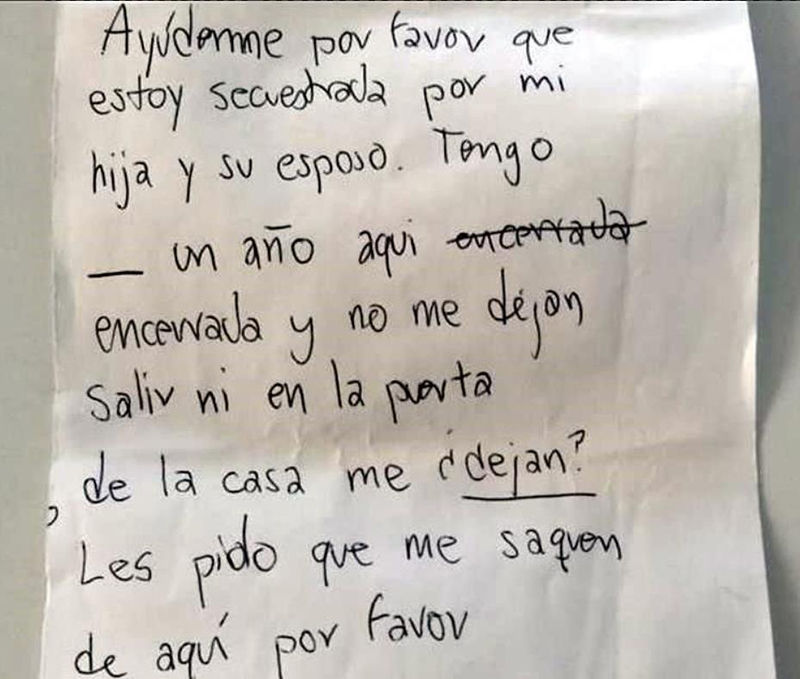 Ayúdenme por favor que
estoy secuestrada por mi
hija y su esposo. Tengo
__ un año aqui encerrada
encerrada y no me déjan
salir ni en la puerta
de la casa me ¿dejan?
, Les pido que me saquen
de aquí por favor